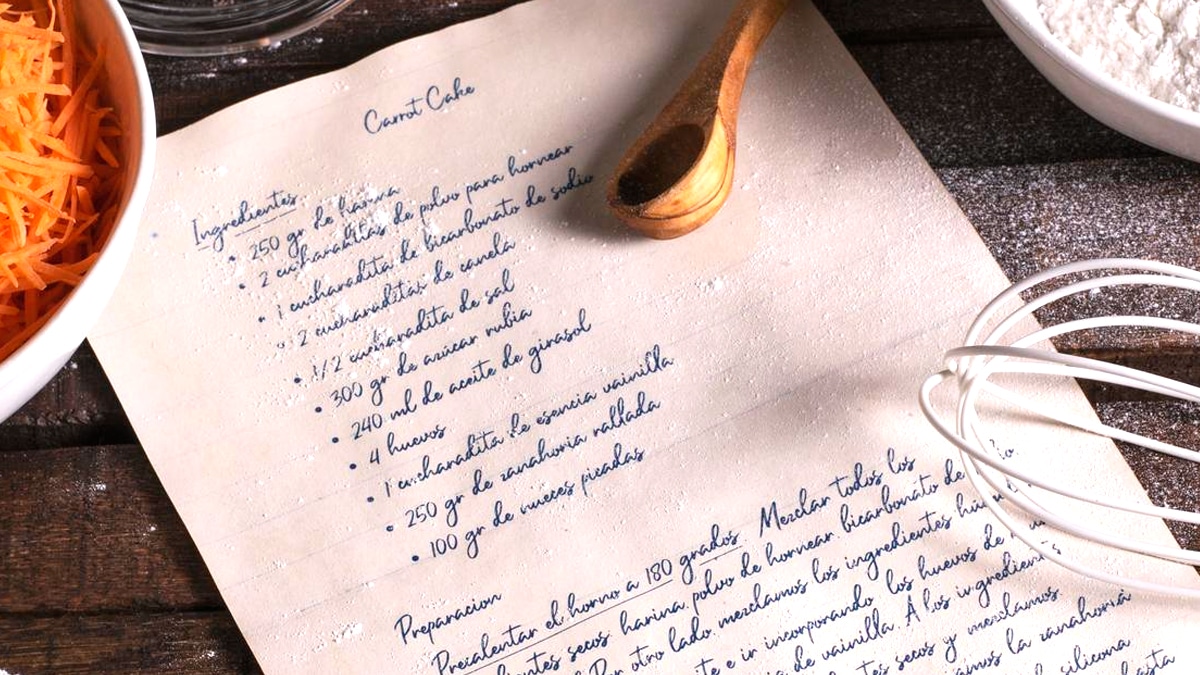 Carrot Cake
Ingredientes
• 250 gr de harina
• 2 cucharaditas de polvo para hornear
• 1 cucharadita de bicarbonato de sodio
• 2 cucharaditas de canela
• 1/2 cucharadita de sal
• 300 gr de azúcar rubia
• 240 ml de aceite de girasol
• 4 huevos
• 1 cucharadita de esencia vainilla
• 250 gr de zanahoria rallada
• 100 gr de nueces picadas
Preparacion
Precalentar el horno a 180 grados. Mezclar todos los
secos harina, polvo de hornear, bicarbonato de
Por otro lado mezclamos los ingredientes
e ir incorporando los huevos de
de vainilla. A los ingredientes
secos y mezclamos.
la zanahoria
silicona